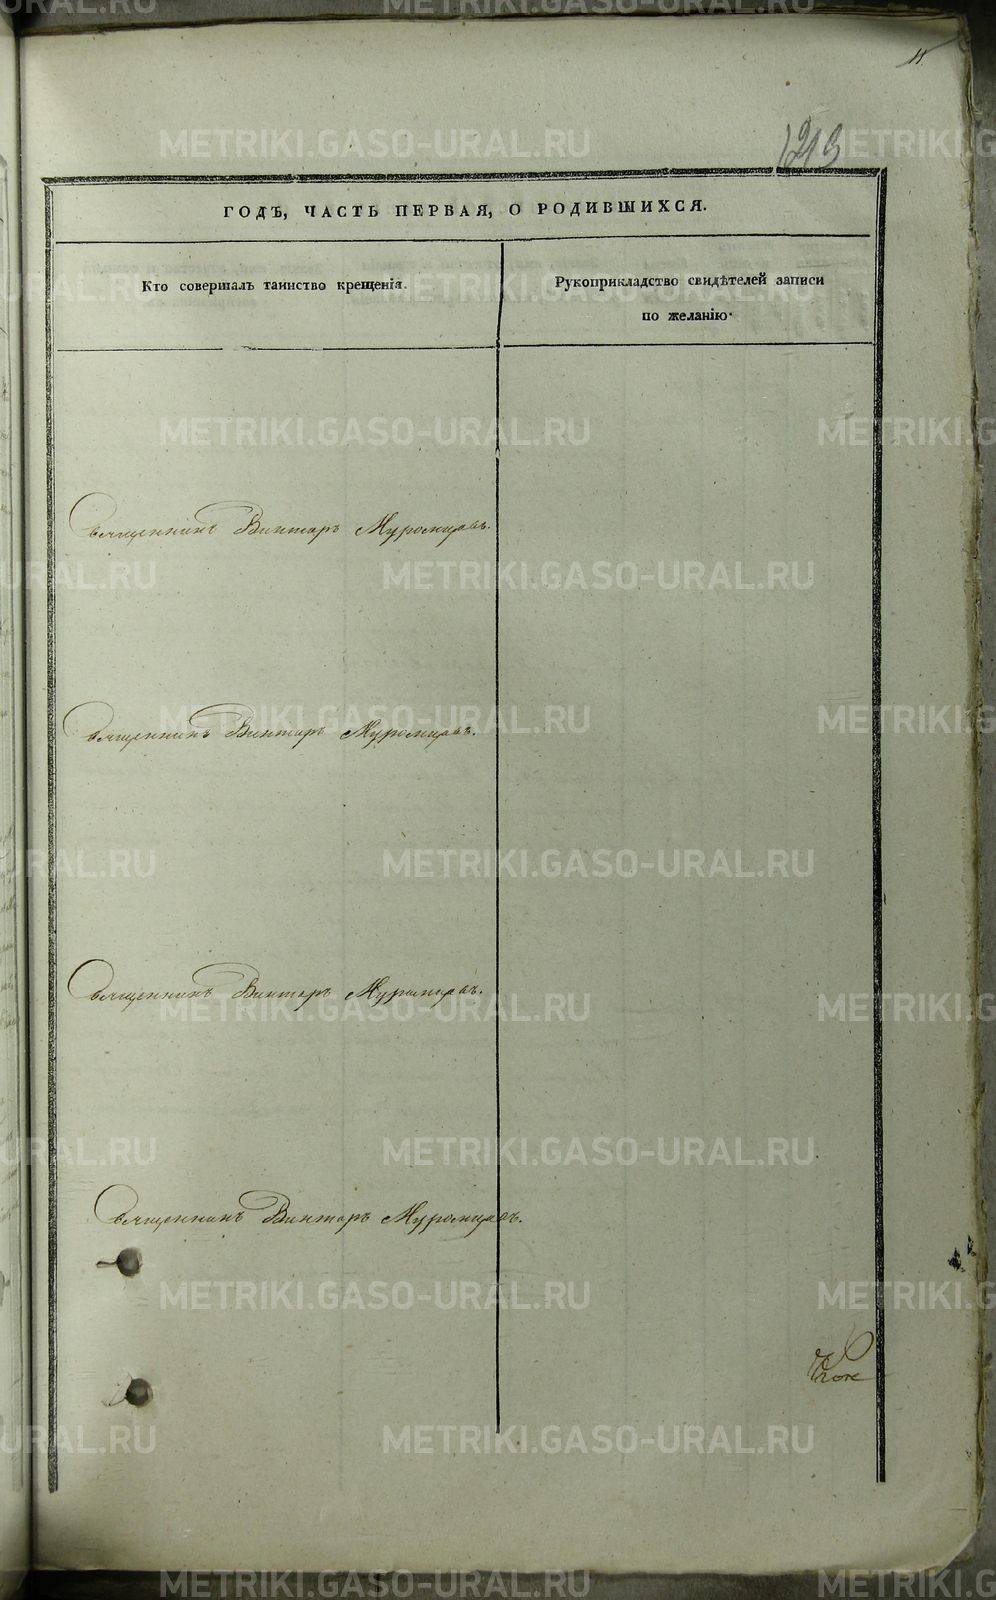 11
1213
ГОДЪ, ЧАСТЬ ПЕРВАЯ, О РОДИВШИХСЯ.
Кто совершалъ таинство крещенія.
Рукоприкладство свидѣтелей записи
по желанію.
Священникъ Викторъ Муромцовъ.
Священникъ Викторъ Муромцовъ.
Священникъ Викторъ Муромцовъ.
Священникъ Викторъ Муромцовъ.
METRIKI.GASO-URAL.RU